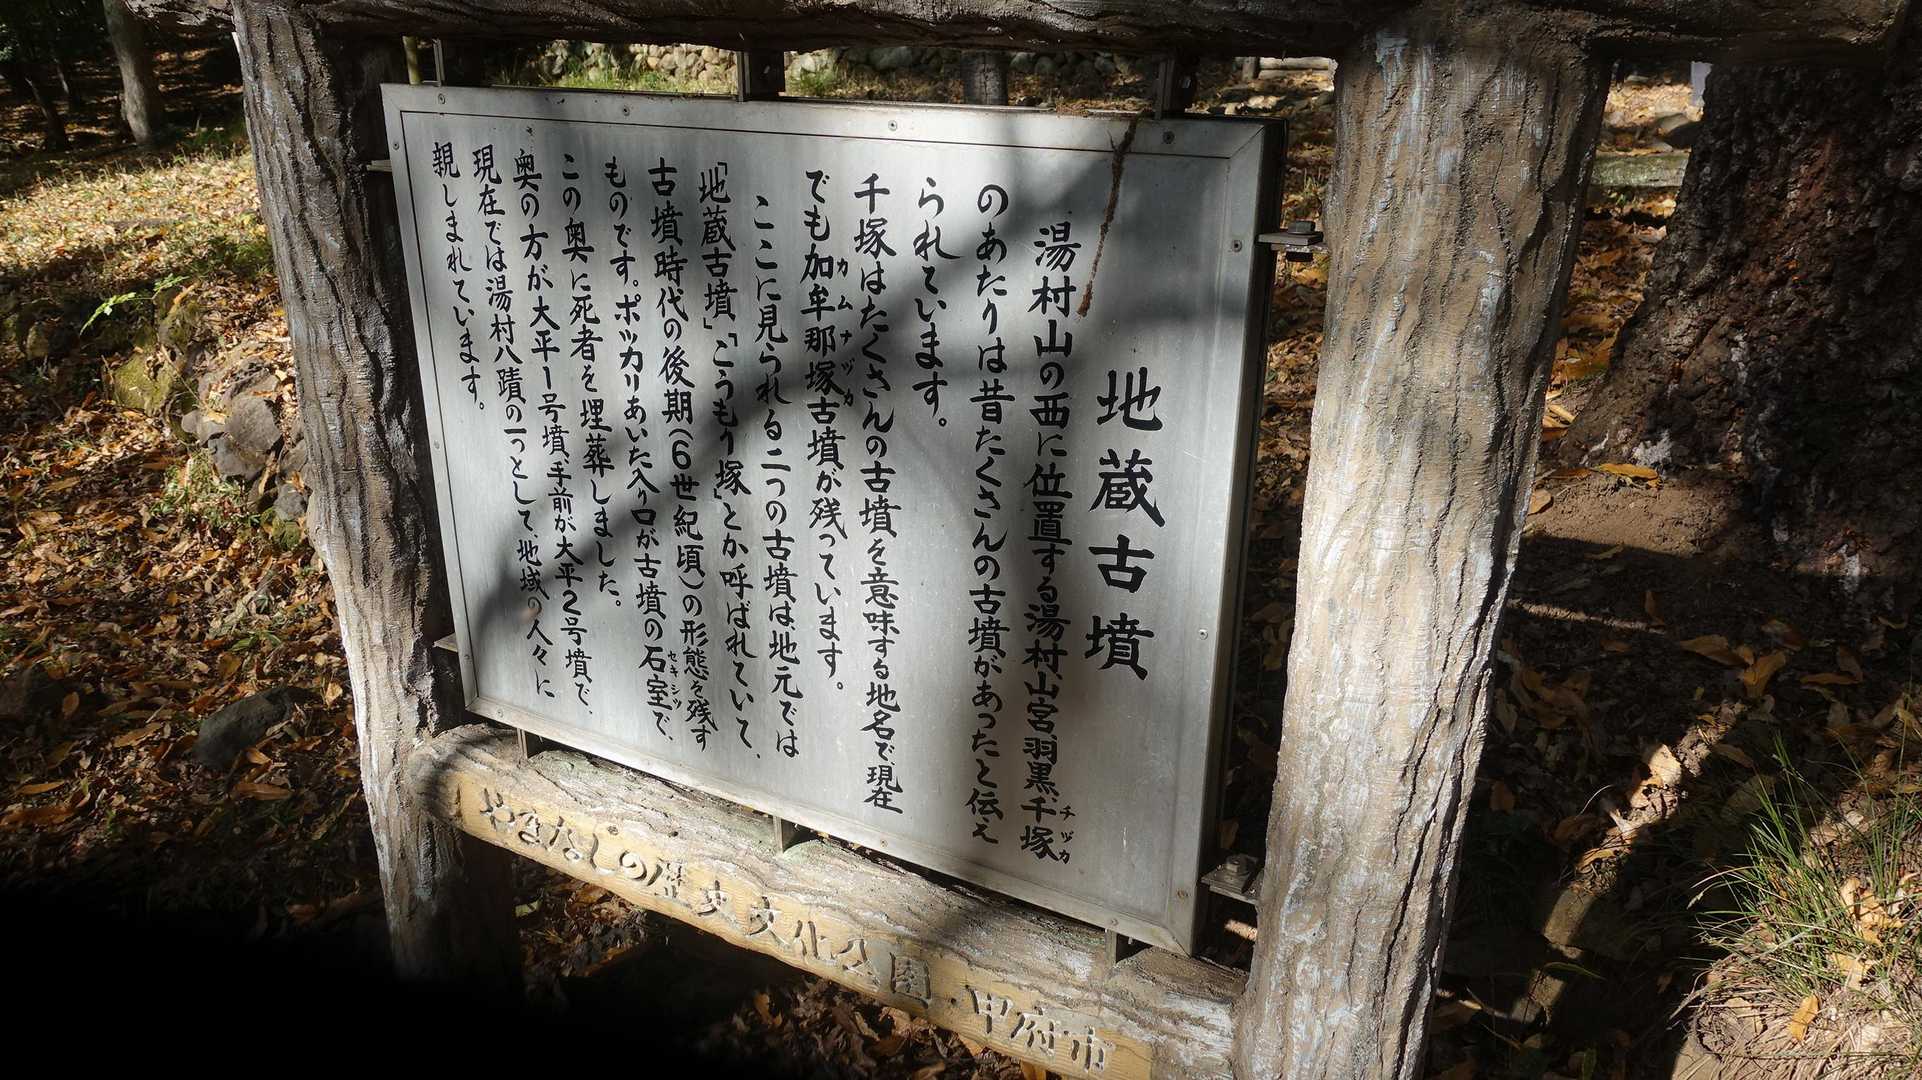 地蔵古墳
湯村山の西に位置する湯村、山宮、羽黒、千塚
チヅカ
のあたりは昔たくさんの古墳があったと伝え
られています。
千塚はたくさんの古墳を意味する地名で、現在
でも加牟那塚古墳が残っています。
カムナヅカ
ここに見られる二つの古墳は地元では
「地蔵古墳」「こうもり塚」とか呼ばれていて、
古墳時代の後期(6世紀頃)の形態を残す
ものです。ポッカリあいた入り口が古墳の石室で、
セキシツ
この奥に死者を埋葬しました。
奥の方が大平1号墳、手前が大平2号墳で、
現在では湯村八蹟の一つとして、地域の人々に
親しまれています。
やまなしの歴史文化公園・甲府市